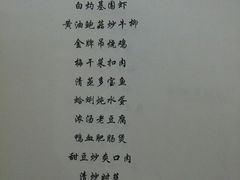 白灼基围虾
黄油鲍菇炒牛柳
金牌吊烧鸡
梅干菜扣肉
清蒸多宝鱼
蛤蜊炖水蛋
浓汤老豆腐
鸭血肥肠煲
甜豆炒爽口肉
清炒时蔬